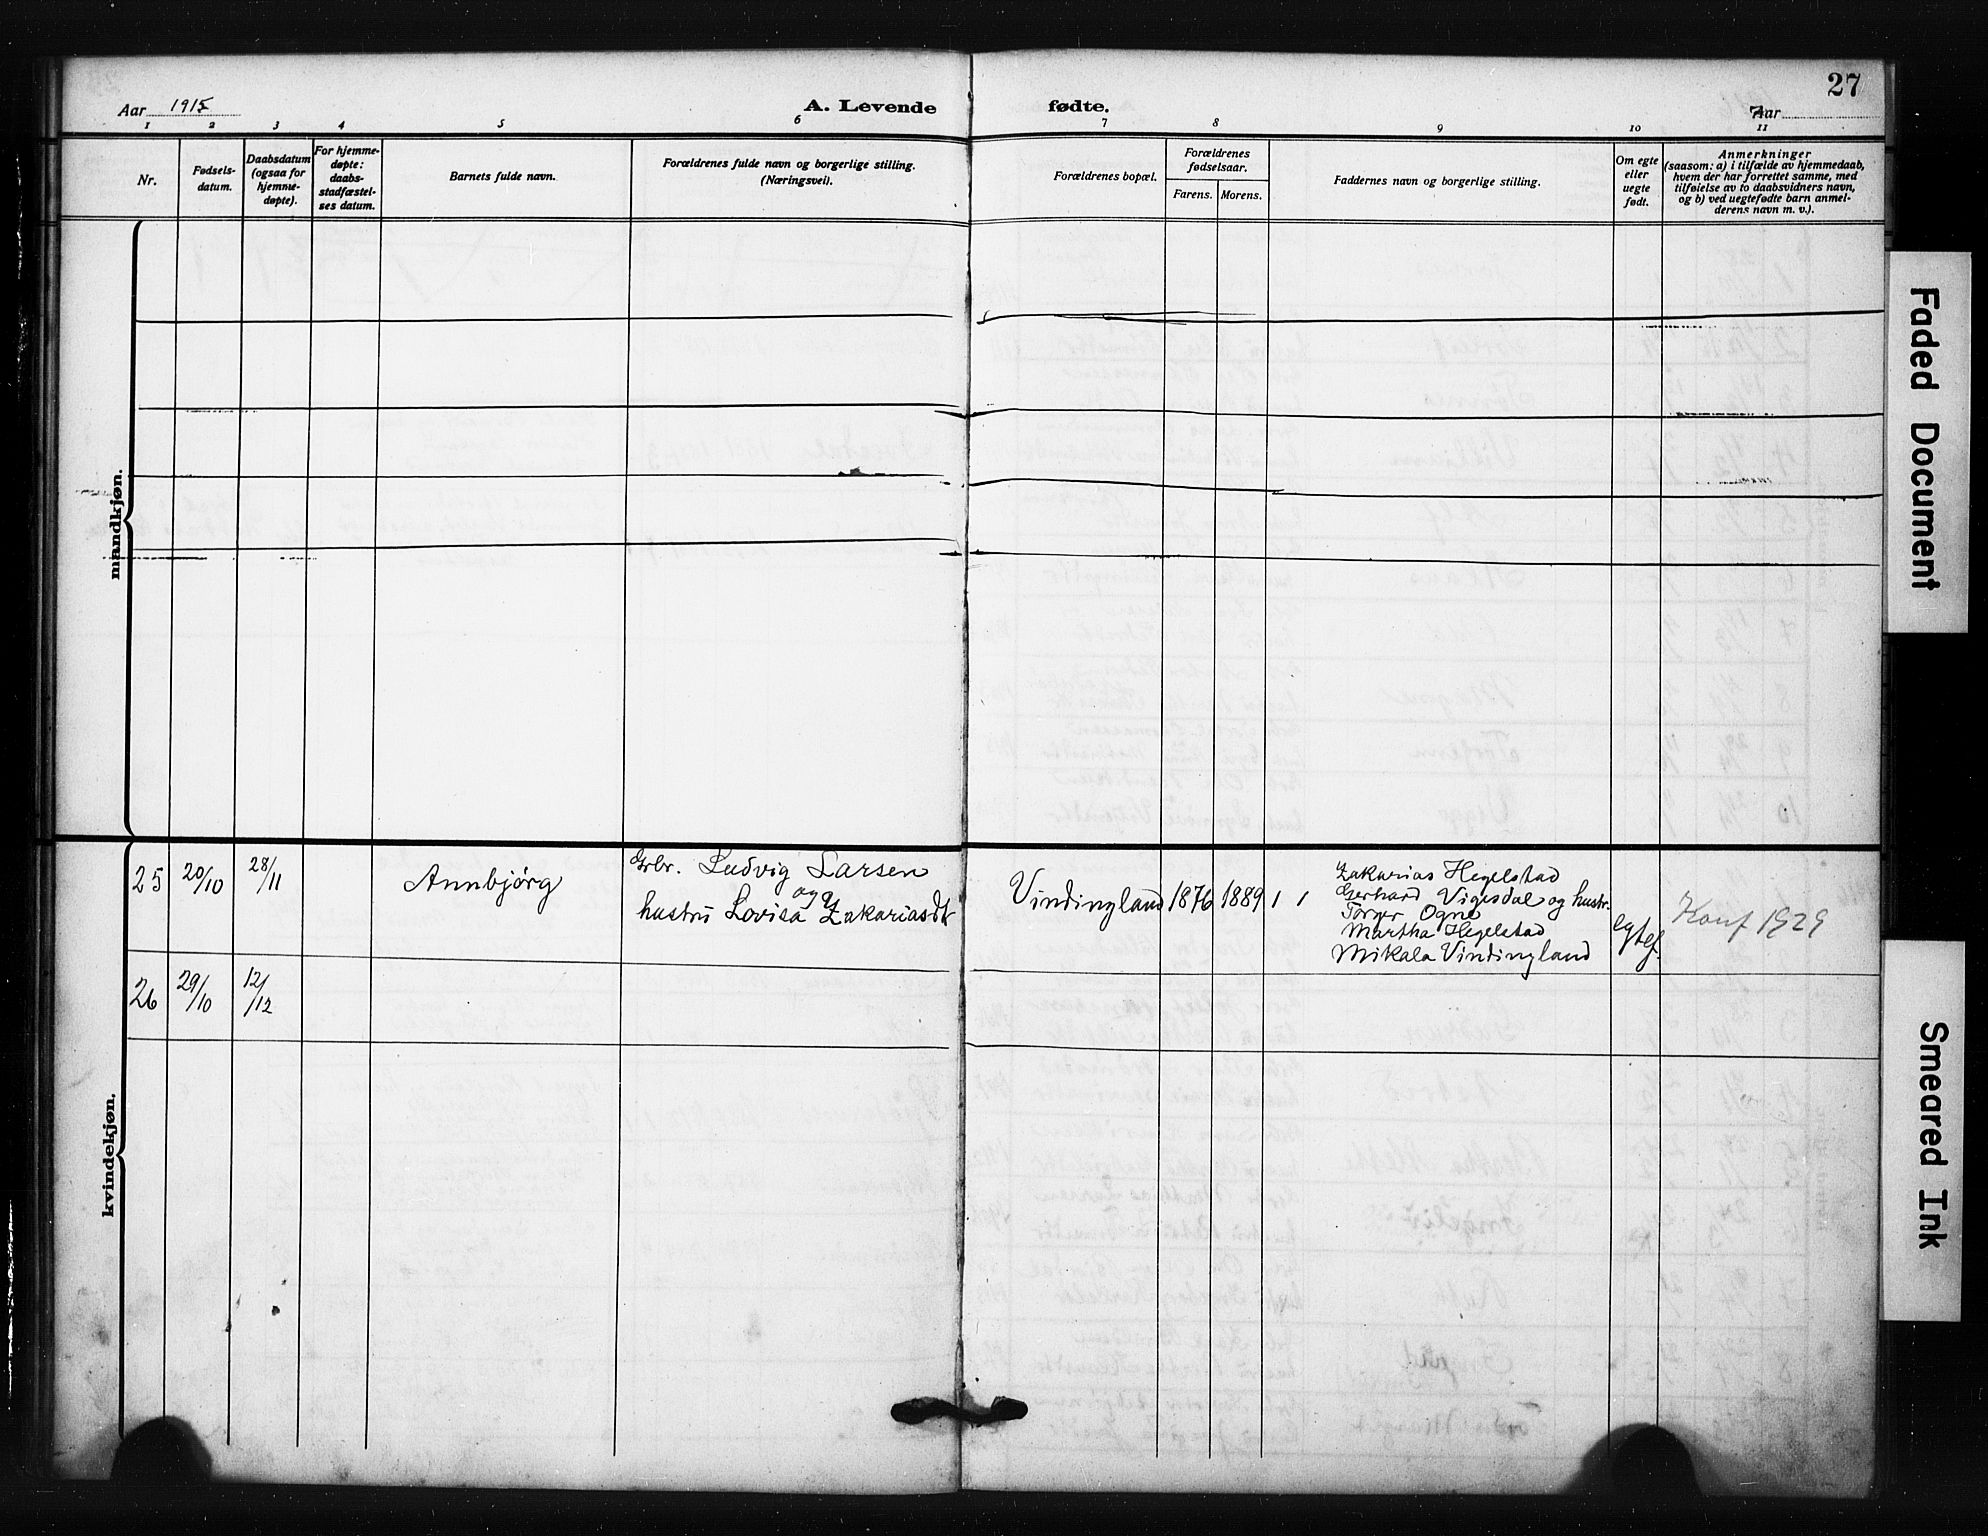 27
Aar 1915
A. Levende
fødte.
Aar
1 2 3 4 5 6 7 8 9 10 11
Nr.
Fødsels-
datum.
Daabsdatum
(ogsaa for
hjemme-
døpte).
For hjemme-
døpte:
daabs-
stadfæstel-
ses datum.
Barnets fulde navn.
Forældrenes fulde navn og borgerlige stilling.
(Næringsvei).
Forældrenes bopæl.
Forældrenes
fødselsaar.
Farens. Morens.
Faddernes navn og borgerlige stilling.
Om egte
eller
uegte
født.
Anmerkninger
(saasom: a) i tilfælde av hjemmedaab,
hvem der har forrettet samme, med
tilføielse av to daabsvidners navn,
og b) ved uegtefødte barn anmel-
derens navn m. v.).
mandkjøn.
kvindekjøn.
25 20/10 28/11
Annbjörg
Grbr. Ludvig Larsen
og
hustru Lovisa Zakariasdt
Vindingland 1876 1889 1 1
Zakarias Hegelstad
Gerhard Vigesdal og hustr.
Torger Ogne
Martha Hegelstad
Mikala Vindingland
egtef.
Konf 1929
26 29/10 12/12
Faded Document
Smeared Ink